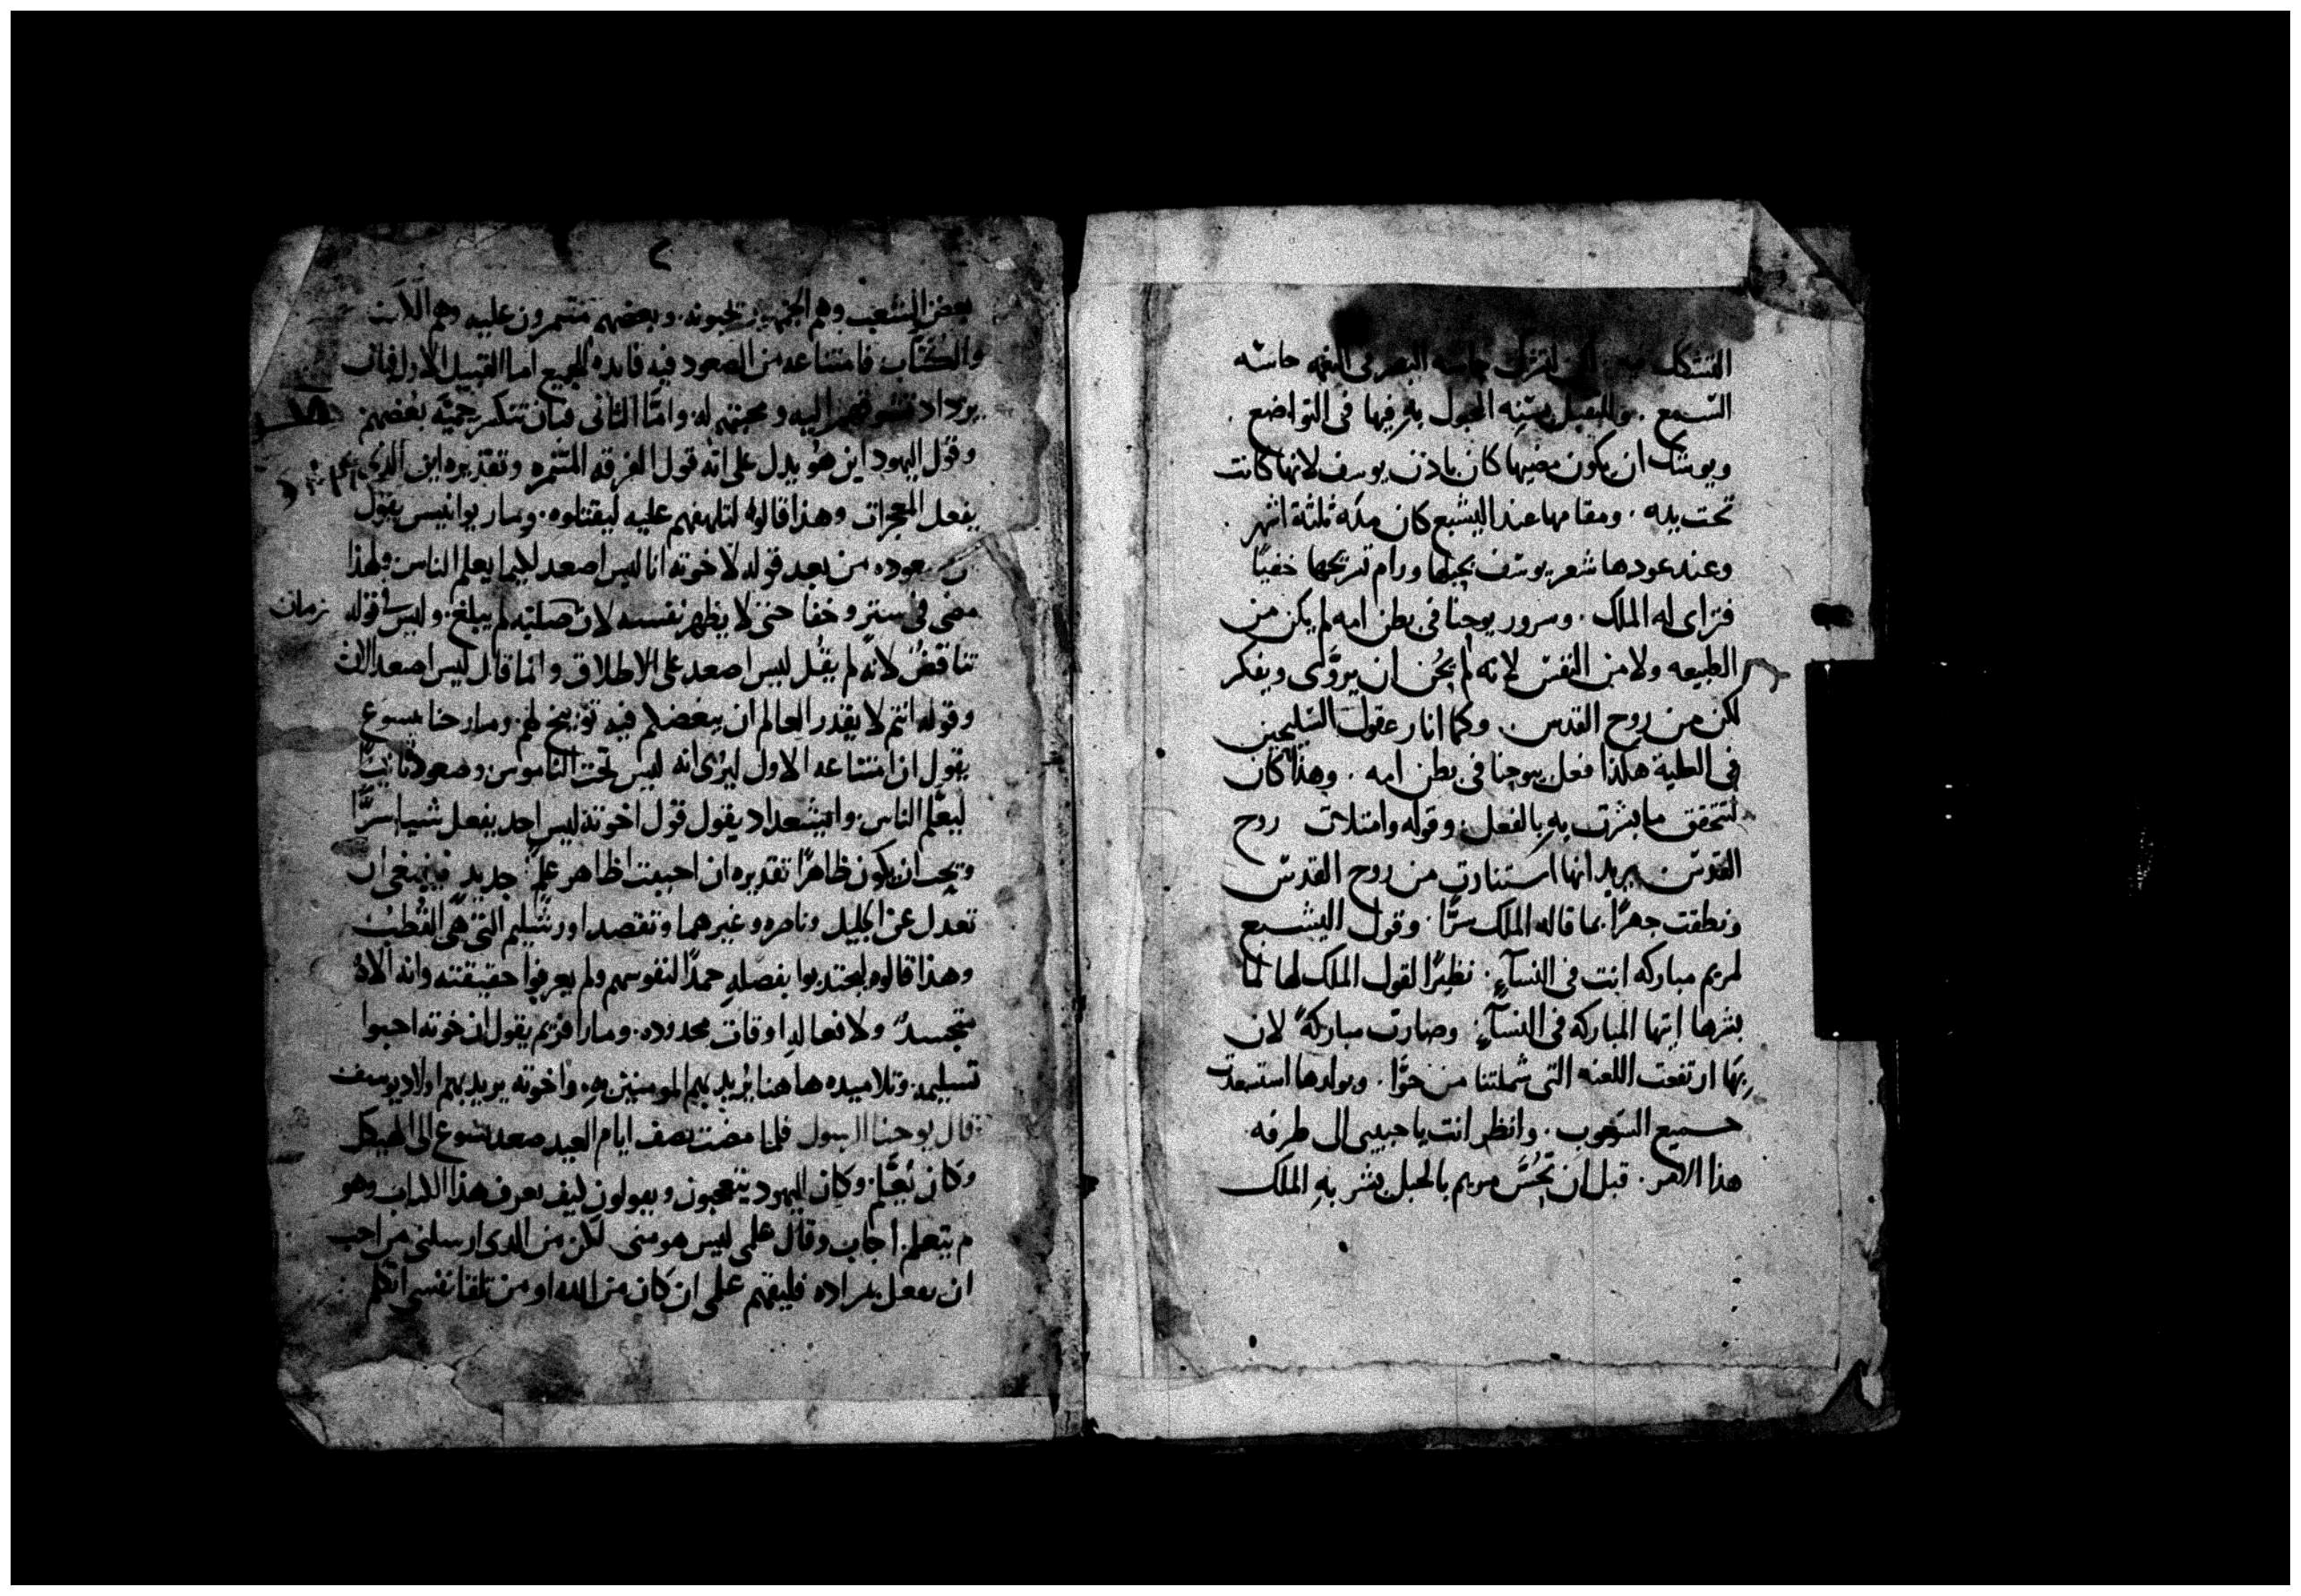 التشكك لتشرك حاسة البصر في النعمه حاسه
السمع . وللتعبد بسنه المجبول به فيها في التواضع .
ويوشك ان يكون مضيها كان باذن يوسف لانها كانت
تحت يده . ومقامها عند اليشبع كان مده ثلثة اشهر .
وعند عودها شعر يوسف بحبلها ورام تسريحها خفيًا
فترااى له الملك . وسرور يوحنا في بطن امه لم يكن من
الطبيعه ولا من النفس لانه لم يحُن ان يروَّى ويفكر
لكن من روح القدس . وكما انار عقول السليحين
في العلية هكذا فعل بيوحنا في بطن امه . وهذا كان
لتتحقق ما بشرت به بالفعل . وقوله وامتلات روح
القدس يريد انها استنارت من روح القدس
ونطقت جهرًا بما قاله الملك سرًّا . وقول اليشبع
لمريم مباركه انت في النسآءِ . نظيرًا لقول الملك لها لما
بشرها ايتها المباركه في النسآءِ . وصارت مباركةً لان
بِهَا ارتفعت اللعنه التي شملتنا من حوَّا . وبولدها استسعدت
جميع الشعوب . وانظر انت يا حبيبي الى طرفه
هذا الامر . قبل ان تحُسَّ مريم بالحبل بشر بهِ الملك
٢
بعض الشعب وهم الجمهور يحبونه . وبعضهم متنمرون عليه وهم
والكتّاب فامتناعه من الصعود فيه فايده للجميع اما القبيل الاول فبان
يزداد تشوقهم اليه ومحبتهم له . وامّا الثاني فبان تنكسر حميَّة بغضهم
وقول اليهود اين هو يدل على انه قول الفرقه المتنمره وتقديره اين الذي
يفعل المعجزات وهذا قالوه لتلهفهم عليه ليقتلوه . ومار يوانيس يقول
ان صعوده من بعد قوله لاخوته انا ليس اصعد لكيما يعلم الناس ولهذا
مضى في ستر وخفا حتى لا يظهر نفسه لان صلبه لم يبلغ . وليس في قوله
زمان
تناقضٌ لانّه لم يقُل ليس اصعد على الاطلاق وانما قال ليس اصعد الان
وقوله انتم لا يقدر العالم ان يبغضكم فيه توبيخ لهم . ومار خنا يسوع
يقول ان امتناعه الاول ليُرى انه ليس تحت الناموس . وصعود ثانيًا
ليعلّم الناس . وايشعداد يقول قول اخوته ليس احد يفعل شيا سرًّا
ويحب ان يكون ظاهرًا تقديره ان احببت اظاهر علمٍ جديدٍ فينبغي ان
تعدل عن الجليل وناصره وغيرهما وتقصد اورشليم التي هي القطب
وهذا قالوه ليجتذبوا بفضله حمدًا لنفوسهم ولم يعرفوا حقيقته وانه الاهٌ
متجسدٌ ولافعاله اوقات محدوده . ومار افريم يقول ان خوته احبوا
تسليمه . وتلاميده هاهنا يُريد بهم المومنين بهِ . واخوته يريد بهم اولاد يوسف
قال يوحنا الرسول فلما مضت نصف ايام العيد صعد يسوع الى الهيكل
وكان يُعلّم . وكان اليهود يتعجبون ويقولون كيف يعرف هذا الكتاب وهو
لم يتعلم . اجاب وقال علمي ليس هو مني لكن من الذي ارسلني من احب
ان يفعل مراده فليفهم علمي ان كان من الله او من تلقا نفسي اتكلم